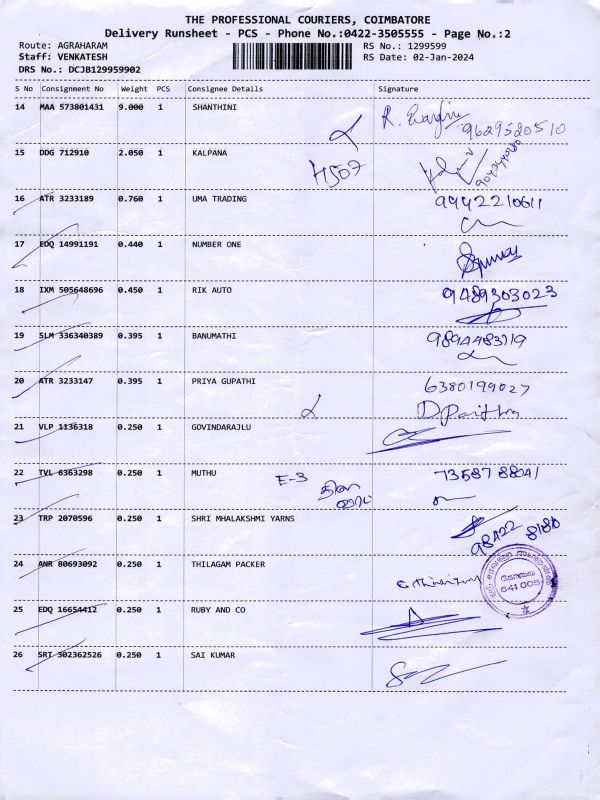 THE PROFESSIONAL COURIERS, COIMBATORE
Delivery Runsheet - PCS - Phone No.:0422-3505555 - Page No.:2
Route: AGRAHARAM RS No.: 1299599
Staff: VENKATESH RS Date: 02-Jan-2024
DRS No.: DCJB129959902
S No Consignment No Weight PCS Consignee Details Signature
14 MAA 573801431 9.000 1 SHANTHINI
9629520510
15 DDG 712910 2.050 1 KALPANA
4507
16 ATR 3233189 0.760 1 UMA TRADING 9442210611
17 EDQ 14991191 0.440 1 NUMBER ONE
18 IXM 505648696 0.450 1 RIK AUTO 9489303023
19 SLM 336340389 0.395 1 BANUMATHI 9894483719
20 ATR 3233147 0.395 1 PRIYA GUPATHI 6380199027
21 VLP 1136318 0.250 1 GOVINDARAJLU
22 TVL 6363298 0.250 1 MUTHU E-3 73587 88041
23 TRP 2070596 0.250 1 SHRI MHALAKSHMI YARNS
98422 8180
24 ANR 80693092 0.250 1 THILAGAM PACKER
641 005
25 EDQ 16654412 0.250 1 RUBY AND CO
26 SRT 302362526 0.250 1 SAI KUMAR